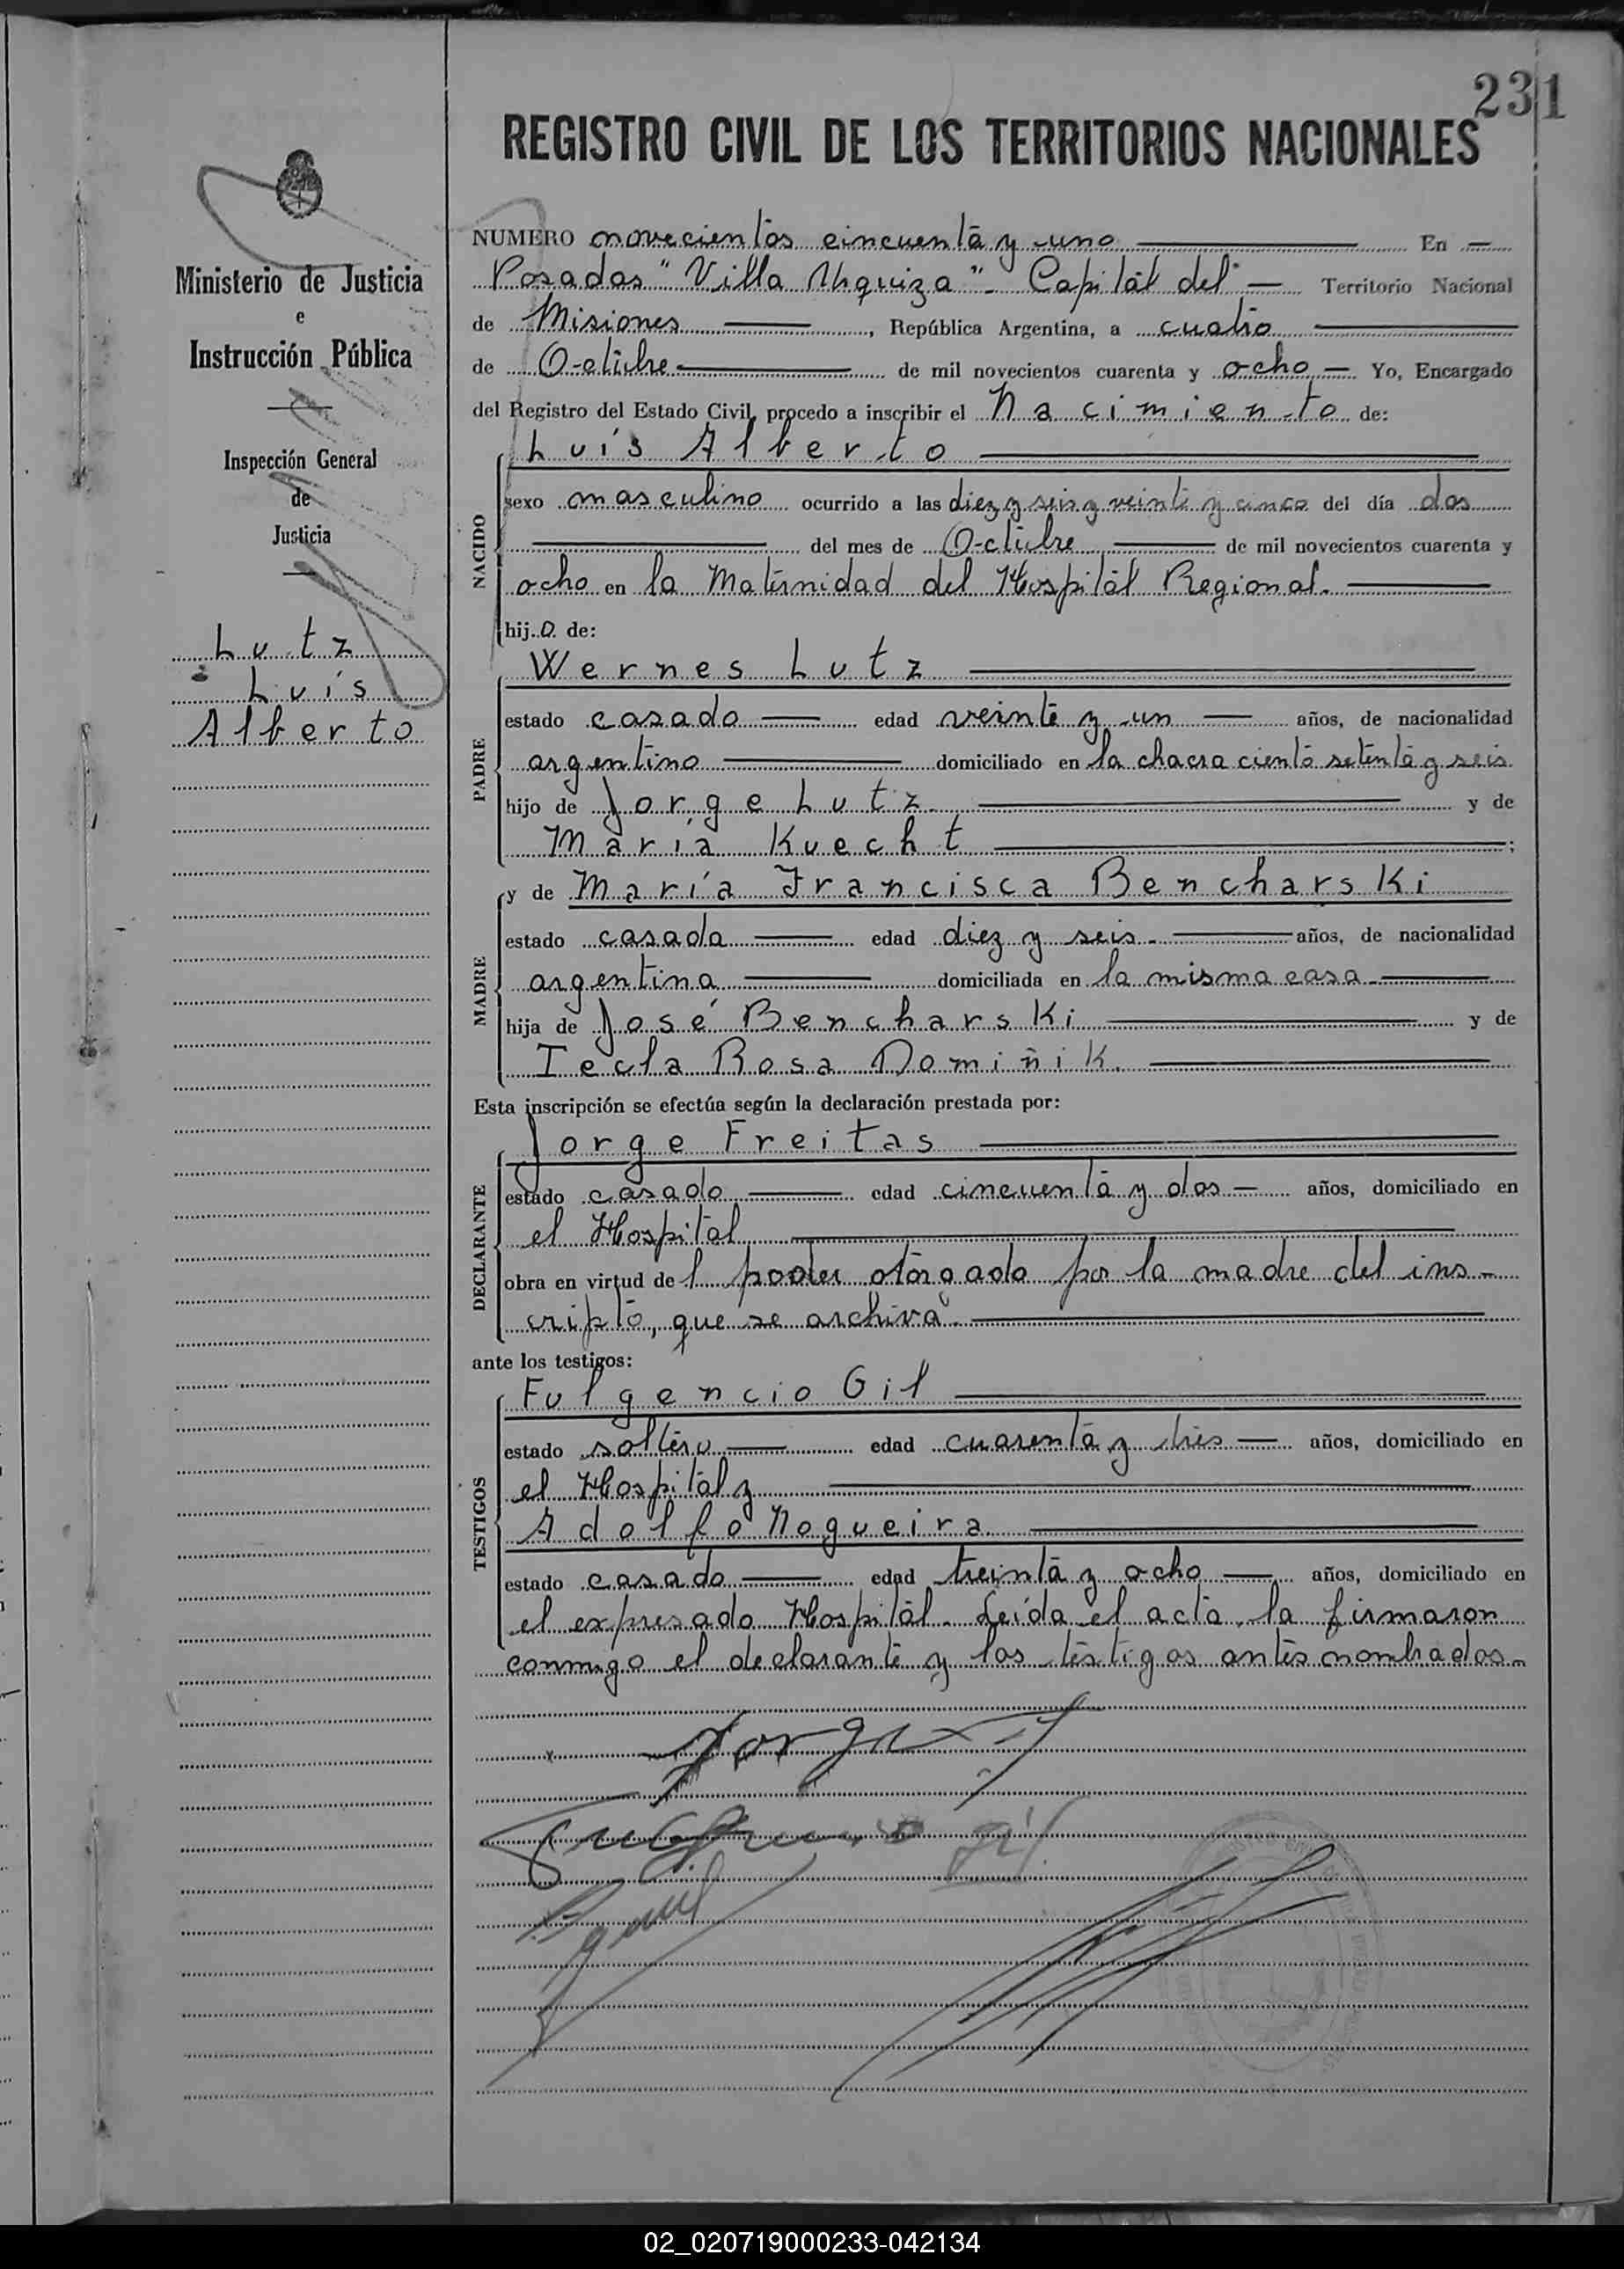 231
REGISTRO CIVIL DE LOS TERRITORIOS NACIONALES
Ministerio de Justicia
e
Instrucción Pública
Inspección General
de
Justicia
Lutz
Luís
Alberto
NUMERO novecientos cincuenta y uno En
Posadas "Villa Urquiza" - Capital del Territorio Nacional
de Misiones, República Argentina, a cuatro
de Octubre de mil novecientos cuarenta y ocho Yo, Encargado
del Registro del Estado Civil, procedo a inscribir el Nacimiento de:
NACIDO
Luís Alberto
sexo masculino ocurrido a las diez y seis y veinte y cinco del día dos
del mes de Octubre de mil novecientos cuarenta y
ocho en la Maternidad del Hospital Regional.
hij.o de:
PADRE
Wernes Lutz
estado casado edad veinte y un años, de nacionalidad
argentino domiciliado en la chacra ciento setenta y seis
hijo de Jorge Lutz y de
María Kuecht;
MADRE
y de María Francisca Bencharski
estado casada edad diez y seis años, de nacionalidad
argentina domiciliada en la misma casa
hija de José Bencharski y de
Tecla Rosa Domiñik.
Esta inscripción se efectúa según la declaración prestada por:
DECLARANTE
Jorge Freitas
estado casado edad cincuenta y dos años, domiciliado en
el Hospital
obra en virtud del poder otorgado por la madre del ins-
cripto, que se archiva.
ante los testigos:
TESTIGOS
Fulgencio Gil
estado soltero edad cuarenta y tres años, domiciliado en
el Hospital y
Adolfo Nogueira
estado casado edad treinta y ocho años, domiciliado en
el expresado Hospital. Leída el acta, la firmaron
conmigo el declarante y los testigos antes nombrados.
02_020719000233-042134